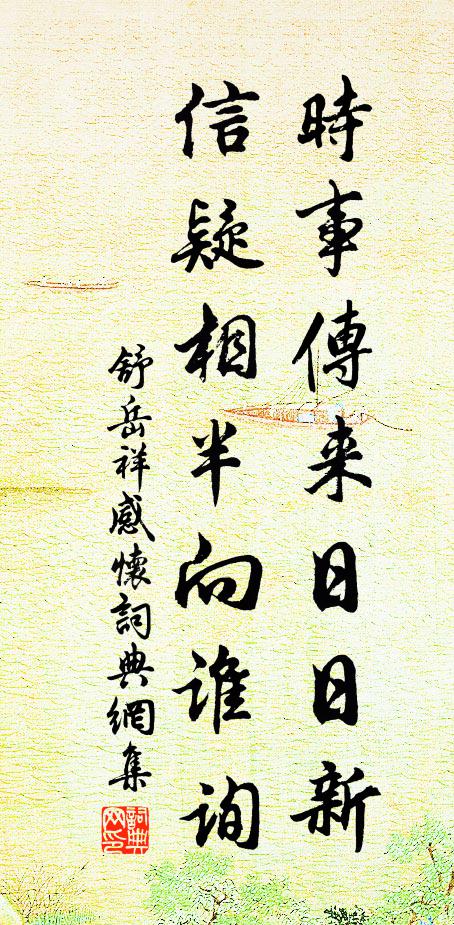 時事傳来日日新
信疑相半向誰詢
舒岳祥感懷詞典網集
詞典网印